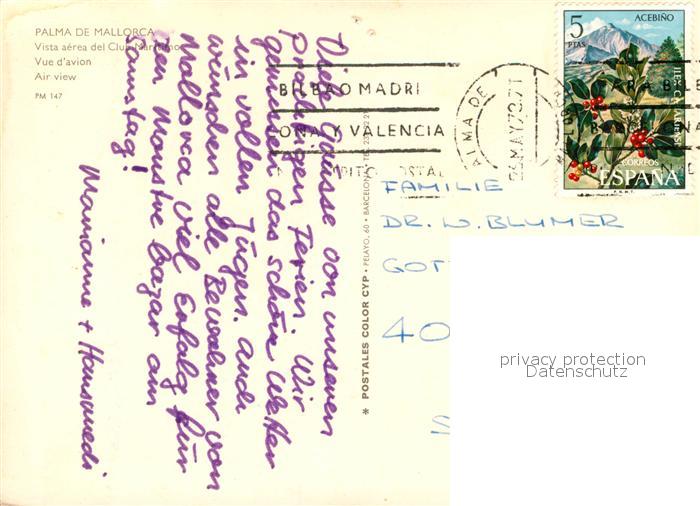 PALMA DE MALLORCA
Vista aérea del Club Marítimo
Vue d'avion
Air view
PM 147
Viele Grüsse von unseren
prächtigen Ferien. Wir
geniessen das schöne Wetter
in vollen Zügen. Auch
wünschen alle Bewohner von
Mallorca viel Erfolg für
den Monstre Bazar am
Samstag!
Marianne + Hansruedi
* POSTALES COLOR CYP • PELAYO, 60 • BARCELONA
BILBAO MADRI
ONA Y VALENCIA
MAY 73
5
PTAS
ACEBIÑO
CORREOS
ESPAÑA
F.N.M.T.
FAMILIE
DR. W. BLUMER
GOT
40
S
privacy protection
Datenschutz